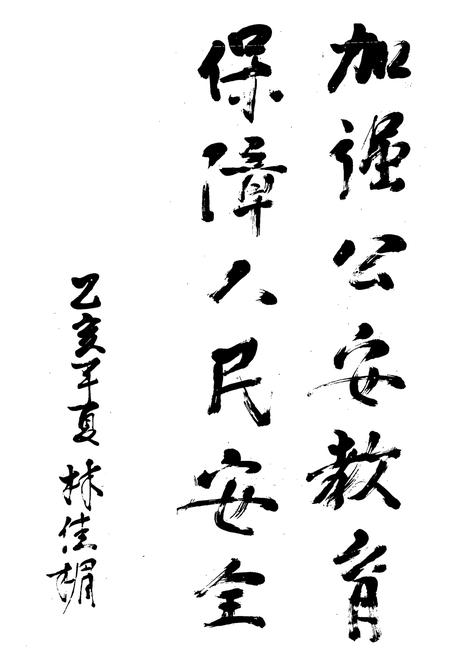 加强公安教育
保障人民安全
乙亥年夏 林佳媚